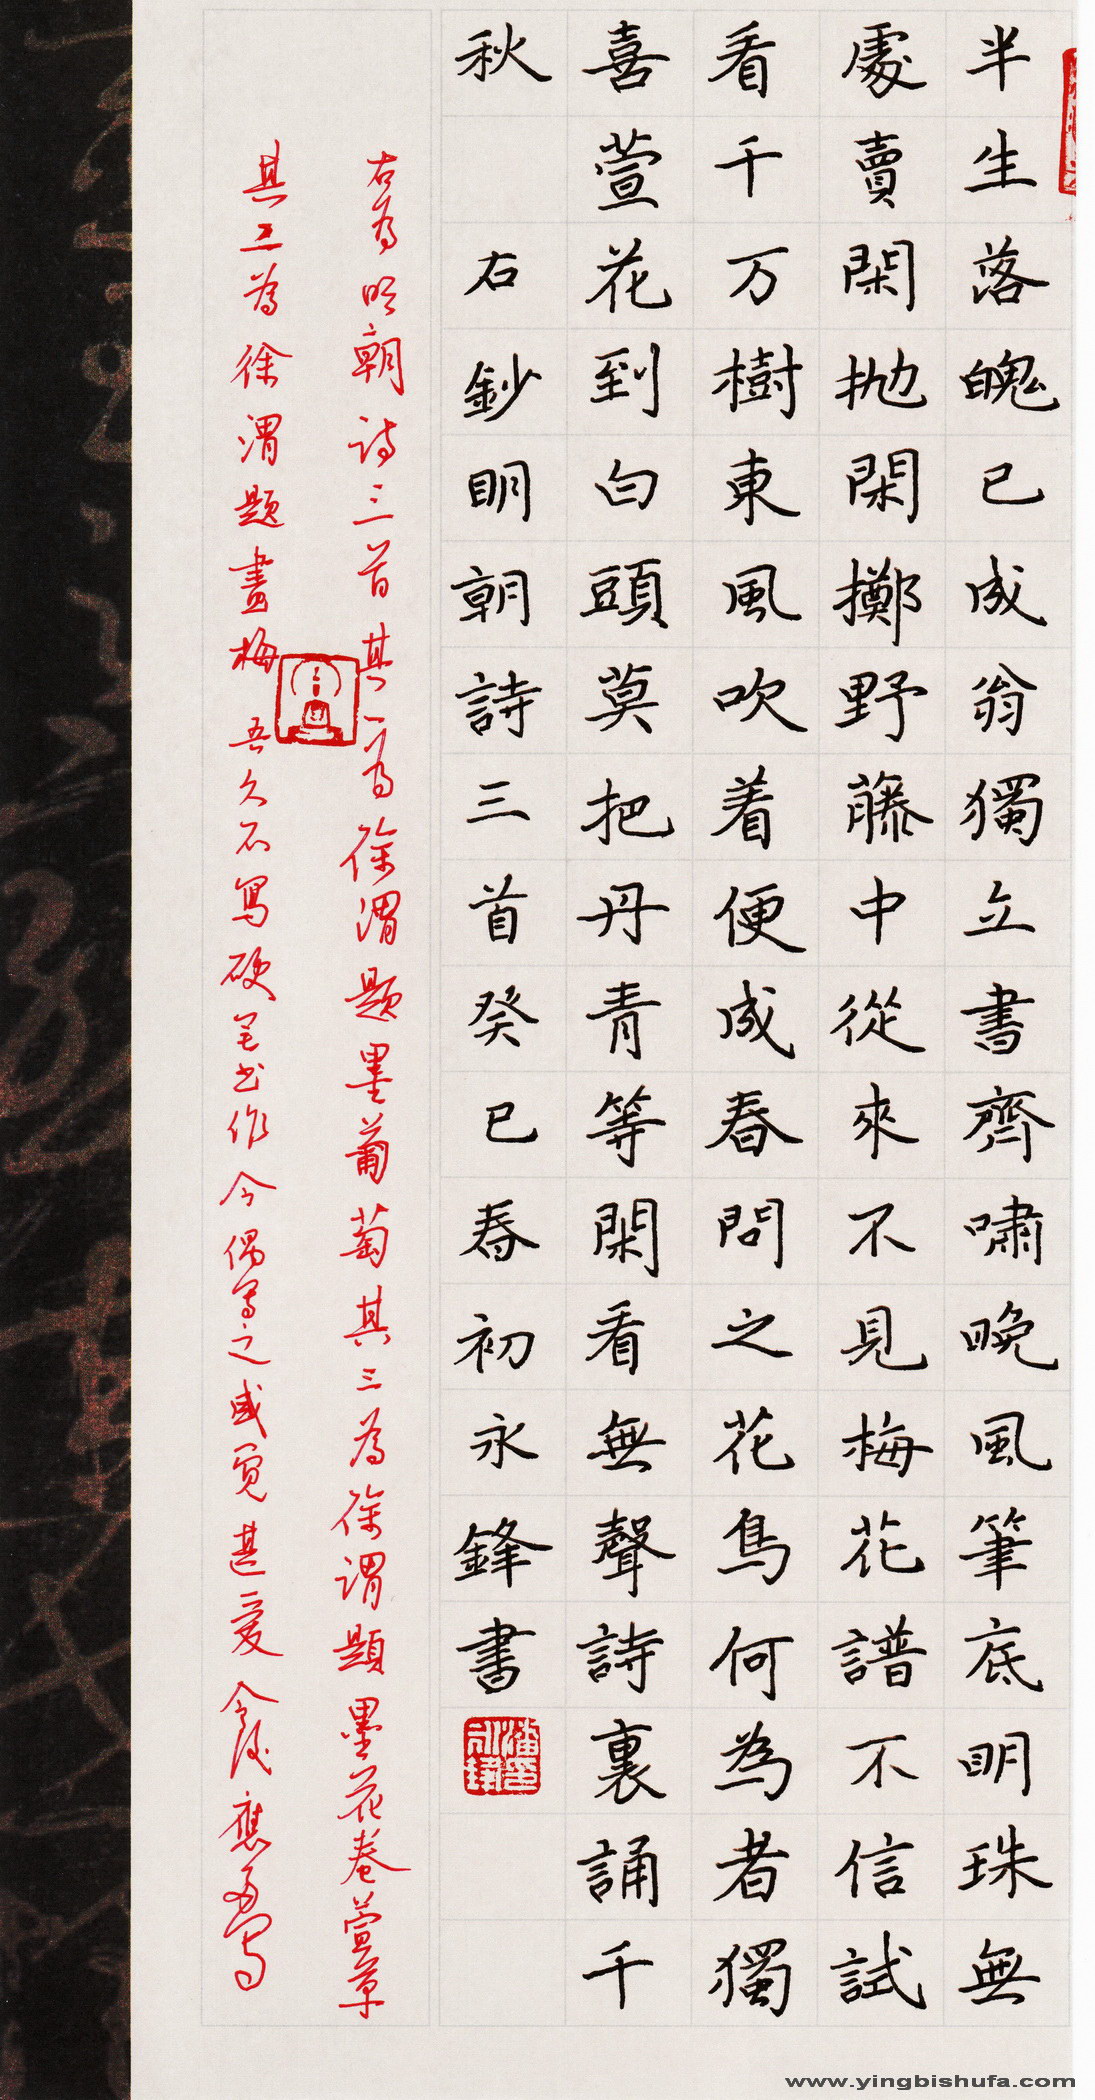 半生落魄已成翁獨立書齊嘯晚風筆底明珠無
處賣閑拋閑擲野藤中從來不見梅花譜不信試
看千万樹東風吹着便成春問之花鳥何為者獨
喜萱花到白頭莫把丹青等閑看無聲詩裏誦千
秋 右鈔明朝詩三首癸巳春初永鋒書
右為明朝詩三首其一為徐渭題墨葡萄其三為徐渭題墨花卷萱草
其二為徐渭題畫梅 吾久不寫硬笔书作今偶寫之感覺甚愛今後應多寫
www.yingbishufa.com